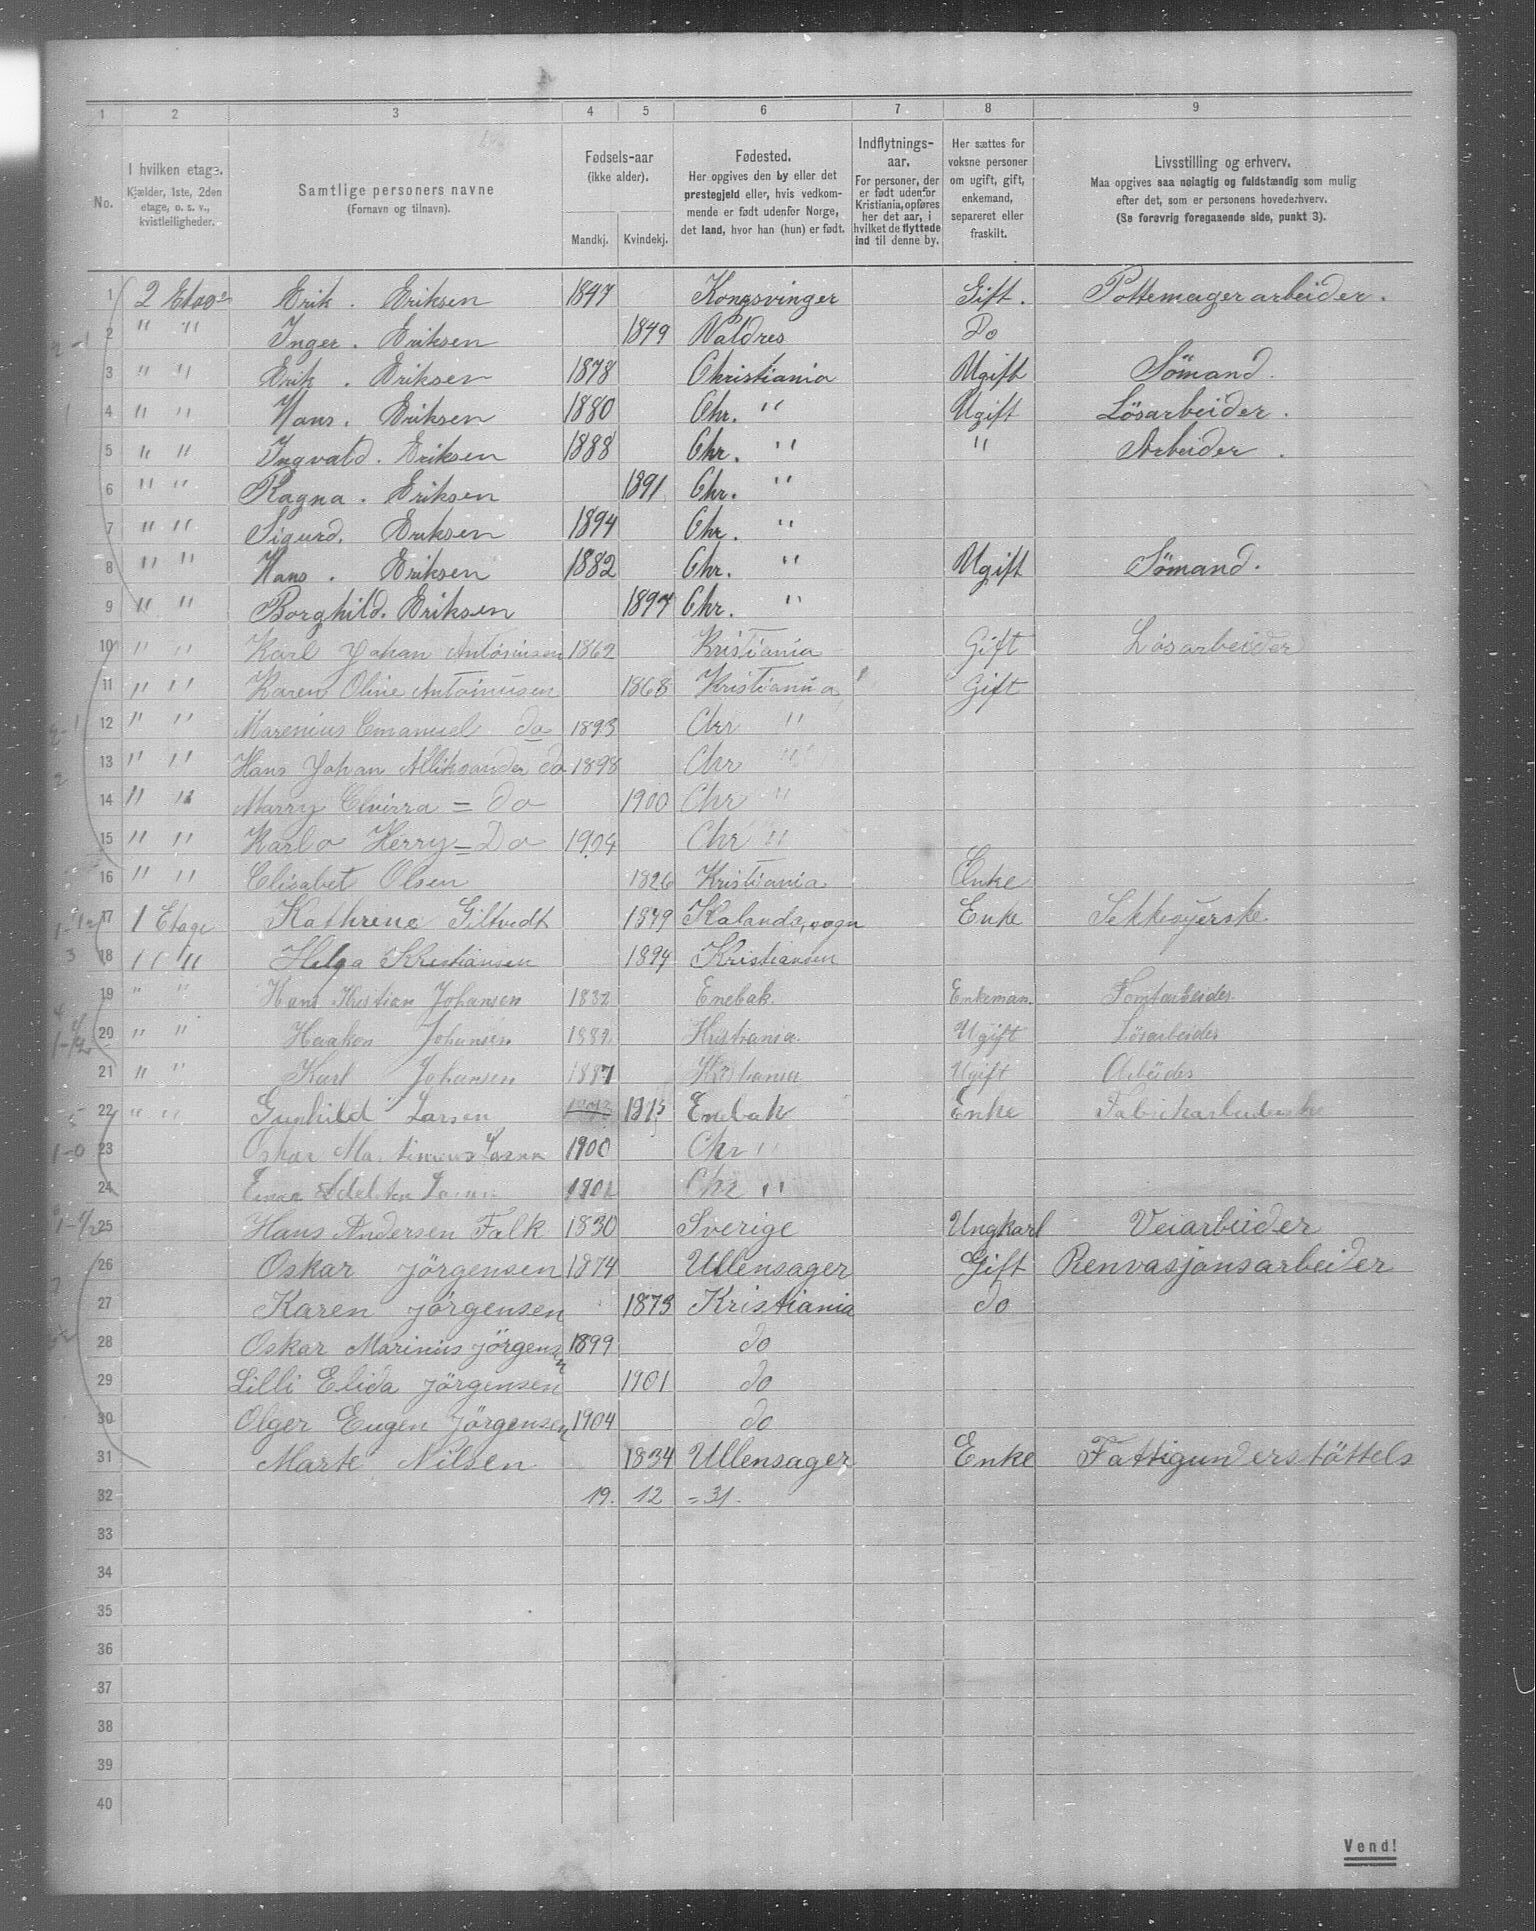 1 2 3 4 5 6 7 8 9
No.
I hvilken etage.
Kjælder, 1ste, 2den
etage, o. s. v.,
kvistleiligheder.
Samtlige personers navne
(Fornavn og tilnavn).
Fødsels-aar
(ikke alder).
Mandkj. Kvindekj.
Fødested.
Her opgives den by eller det
prestegjeld eller, hvis vedkom-
mende er født udenfor Norge,
det land, hvor han (hun) er født.
Indflytnings-
aar.
For personer, der
er født udenfor
Kristiania, opføres
her det aar, i
hvilket de flyttede
ind til denne by.
Her sættes for
voksne personer
om ugift, gift,
enkemand,
separeret eller
fraskilt.
Livsstilling og erhverv.
Maa opgives saa nøiagtig og fuldstændig som mulig
efter det, som er personens hovederhverv.
(Se forøvrig foregaaende side, punkt 3).
1 2 Etage Erik . Eriksen 1847 Kongsvinger Gift . Pottemagerarbeider .
2 " " Inger . Eriksen 1849 Valdres Do
3 " " Erik . Eriksen 1878 Christiania Ugift Sömand .
4 " " Hans . Eriksen 1880 Chr. " Ugift Lösarbeider .
5 " " Ingvald . Eriksen 1888 Chr. " " Arbeider .
6 " " Ragna . Eriksen 1891 Chr. "
7 " " Sigurd . Eriksen 1894 Chr. "
8 " " Hans . Eriksen 1882 Chr. " Ugift Sömand .
9 " " Borghild . Eriksen 1897 Chr. "
10 " " Karl Johan Antoniusen 1862 Kristiania Gift Løsarbeider
11 " " Karen Oline Antoniusen 1868 Kristiania Gift
12 " " Marenius Emanuel do 1893 Chr "
13 " " Hans Johan Alliksander do 1898 Chr "
14 " " Marry Elvirra = do 1900 Chr "
15 " " Karlo Herry = Do 1904 Chr "
16 " " Elisabet Olsen 1826 Kristiania Enke
17 1 Etage Kathrene Giltvedt 1849 Enke Sekkesyerske
18 " " Helga Kristiansen 1894 Kristiansen
19 " " Hans Kristian Johansen 1832 Enebak Enkeman. Tomtarbeider
20 " " Haakon Johansen Kristiania Ugift Lösarbeider
21 " " Karl Johansen 1887 Kristiania Ugift Arbeider
22 " " Gunhild Larsen Enebak Enke Fabrikarbeiderske
23 Oskar Martinius Larsen 1900 Chr "
24 Larsen Chr "
25 Hans Andersen Falk 1830 Sverige Ungkarl Veiarbeider
26 Oskar Jörgensen 1874 Ullensager Gift Renvasjonsarbeider
27 Karen Jörgensen 1873 Kristiania do
28 Oskar Marinius Jörgensen 1899 do
29 Lilli Elida Jörgensen 1901 do
30 Olger Eugen Jörgensen 1904 do
31 Marte Nilsen 1834 Ullensager Enke Fattigunderstöttels
32 19. 12 = 31.
33
34
35
36
37
38
39
40
Vend!